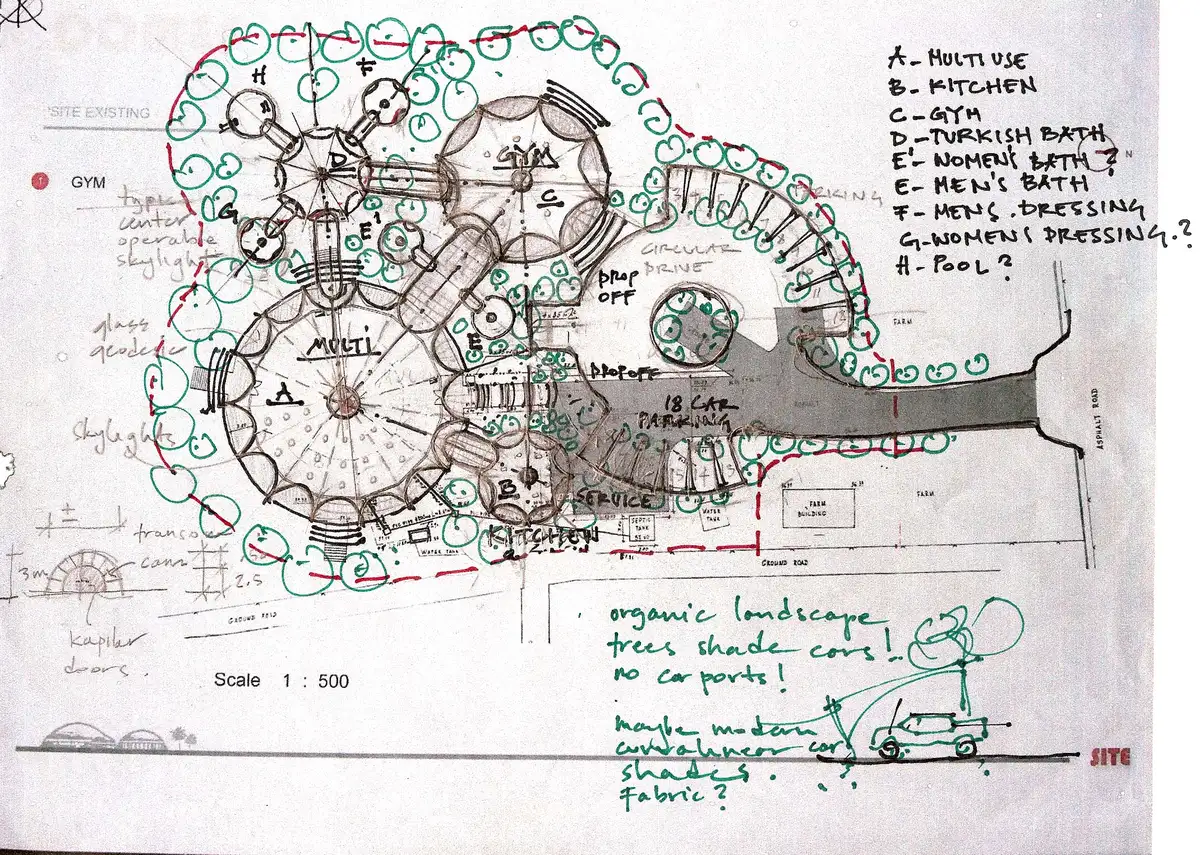 A - MULTI USE
B - KITCHEN
C - GYM
D - TURKISH BATH
E' - WOMEN'S BATH ?
E - MEN'S BATH
F - MENS. DRESSING
G - WOMEN'S DRESSING.?
H - POOL ?
N
'SITE EXISTING
1
GYM
center
operable
skylight
glass
geodesic
skylights
H
F
D
G
E'
GYM
C
PARKING
CIRCULAR
DRIVE
DROP
OFF
FARM
MULTI
A
E
DROP OFF
18 CAR
PARKING
ASPHALT ROAD
B
KITCHEN
SERVICE
SEPTIC
TANK
WATER
TANK
FARM
BUILDING
FARM
WATER TANK
GROUND ROAD
GROUND ROAD
±
3m
2.5
doors.
Scale 1 : 500
organic landscape
trees shade cars!
no carports!
maybe modern
car
shades.
Fabric?
SITE